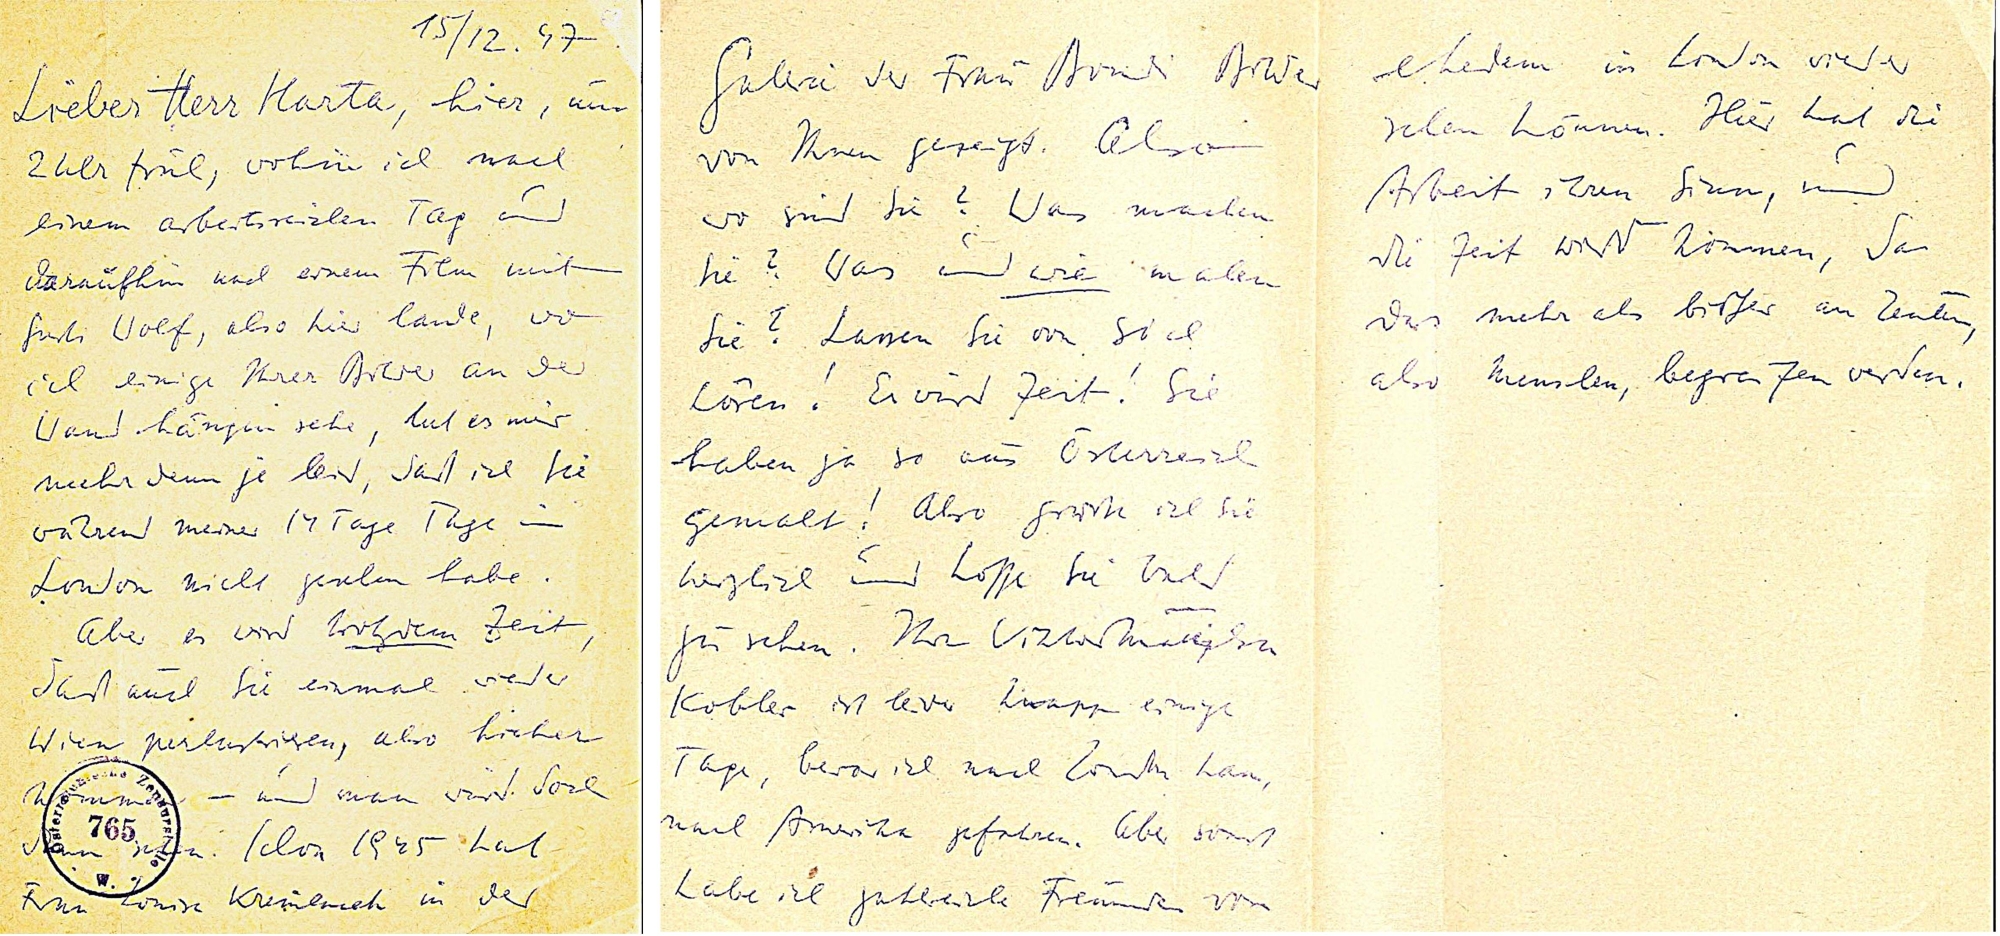 15/12.47
Lieber Herr Harta, hier, um
2 Uhr früh, wohin ich nach
einem arbeitsreichen Tag und
daraufhin nach einem Film mit
Gusti Wolf, also hier lande, wo
ich einige Ihrer Bilder an der
Wand hängen sehe, tut es mir
mehr denn je leid, daß ich Sie
während meiner 14 Tage Tage in
London nicht gesehen habe.
Aber es wird trotzdem Zeit,
daß auch Sie einmal wieder
Wien perlustrieren, also hieher
kommen – und man wird doch
dann sehen. Schon 1945 hat
Frau Louise Kremlacek in der
Österreichische Zensurstelle
765
W.
Galerie der Frau Bondi Bilder
von Ihnen gezeigt. Also
wo sind Sie? Was machen
Sie? Was und wie malen
Sie? Lassen Sie von sich
hören! Es wird Zeit! Sie
haben ja so aus Österreich
gemalt! Also grüße ich Sie
herzlich und hoffe Sie bald
zu sehen. Ihr Viktor Matejka
Kobler ist leider knapp einige
Tage, bevor ich nach London kam,
nach Amerika gefahren. Aber sonst
habe ich zahlreiche Freunde von
ehedem in London wieder
sehen können. Hier hat die
Arbeit ihren Sinn, und
die Zeit wird kommen, da
dies mehr als bisher an Leuten,
also Menschen, begreifen werden.